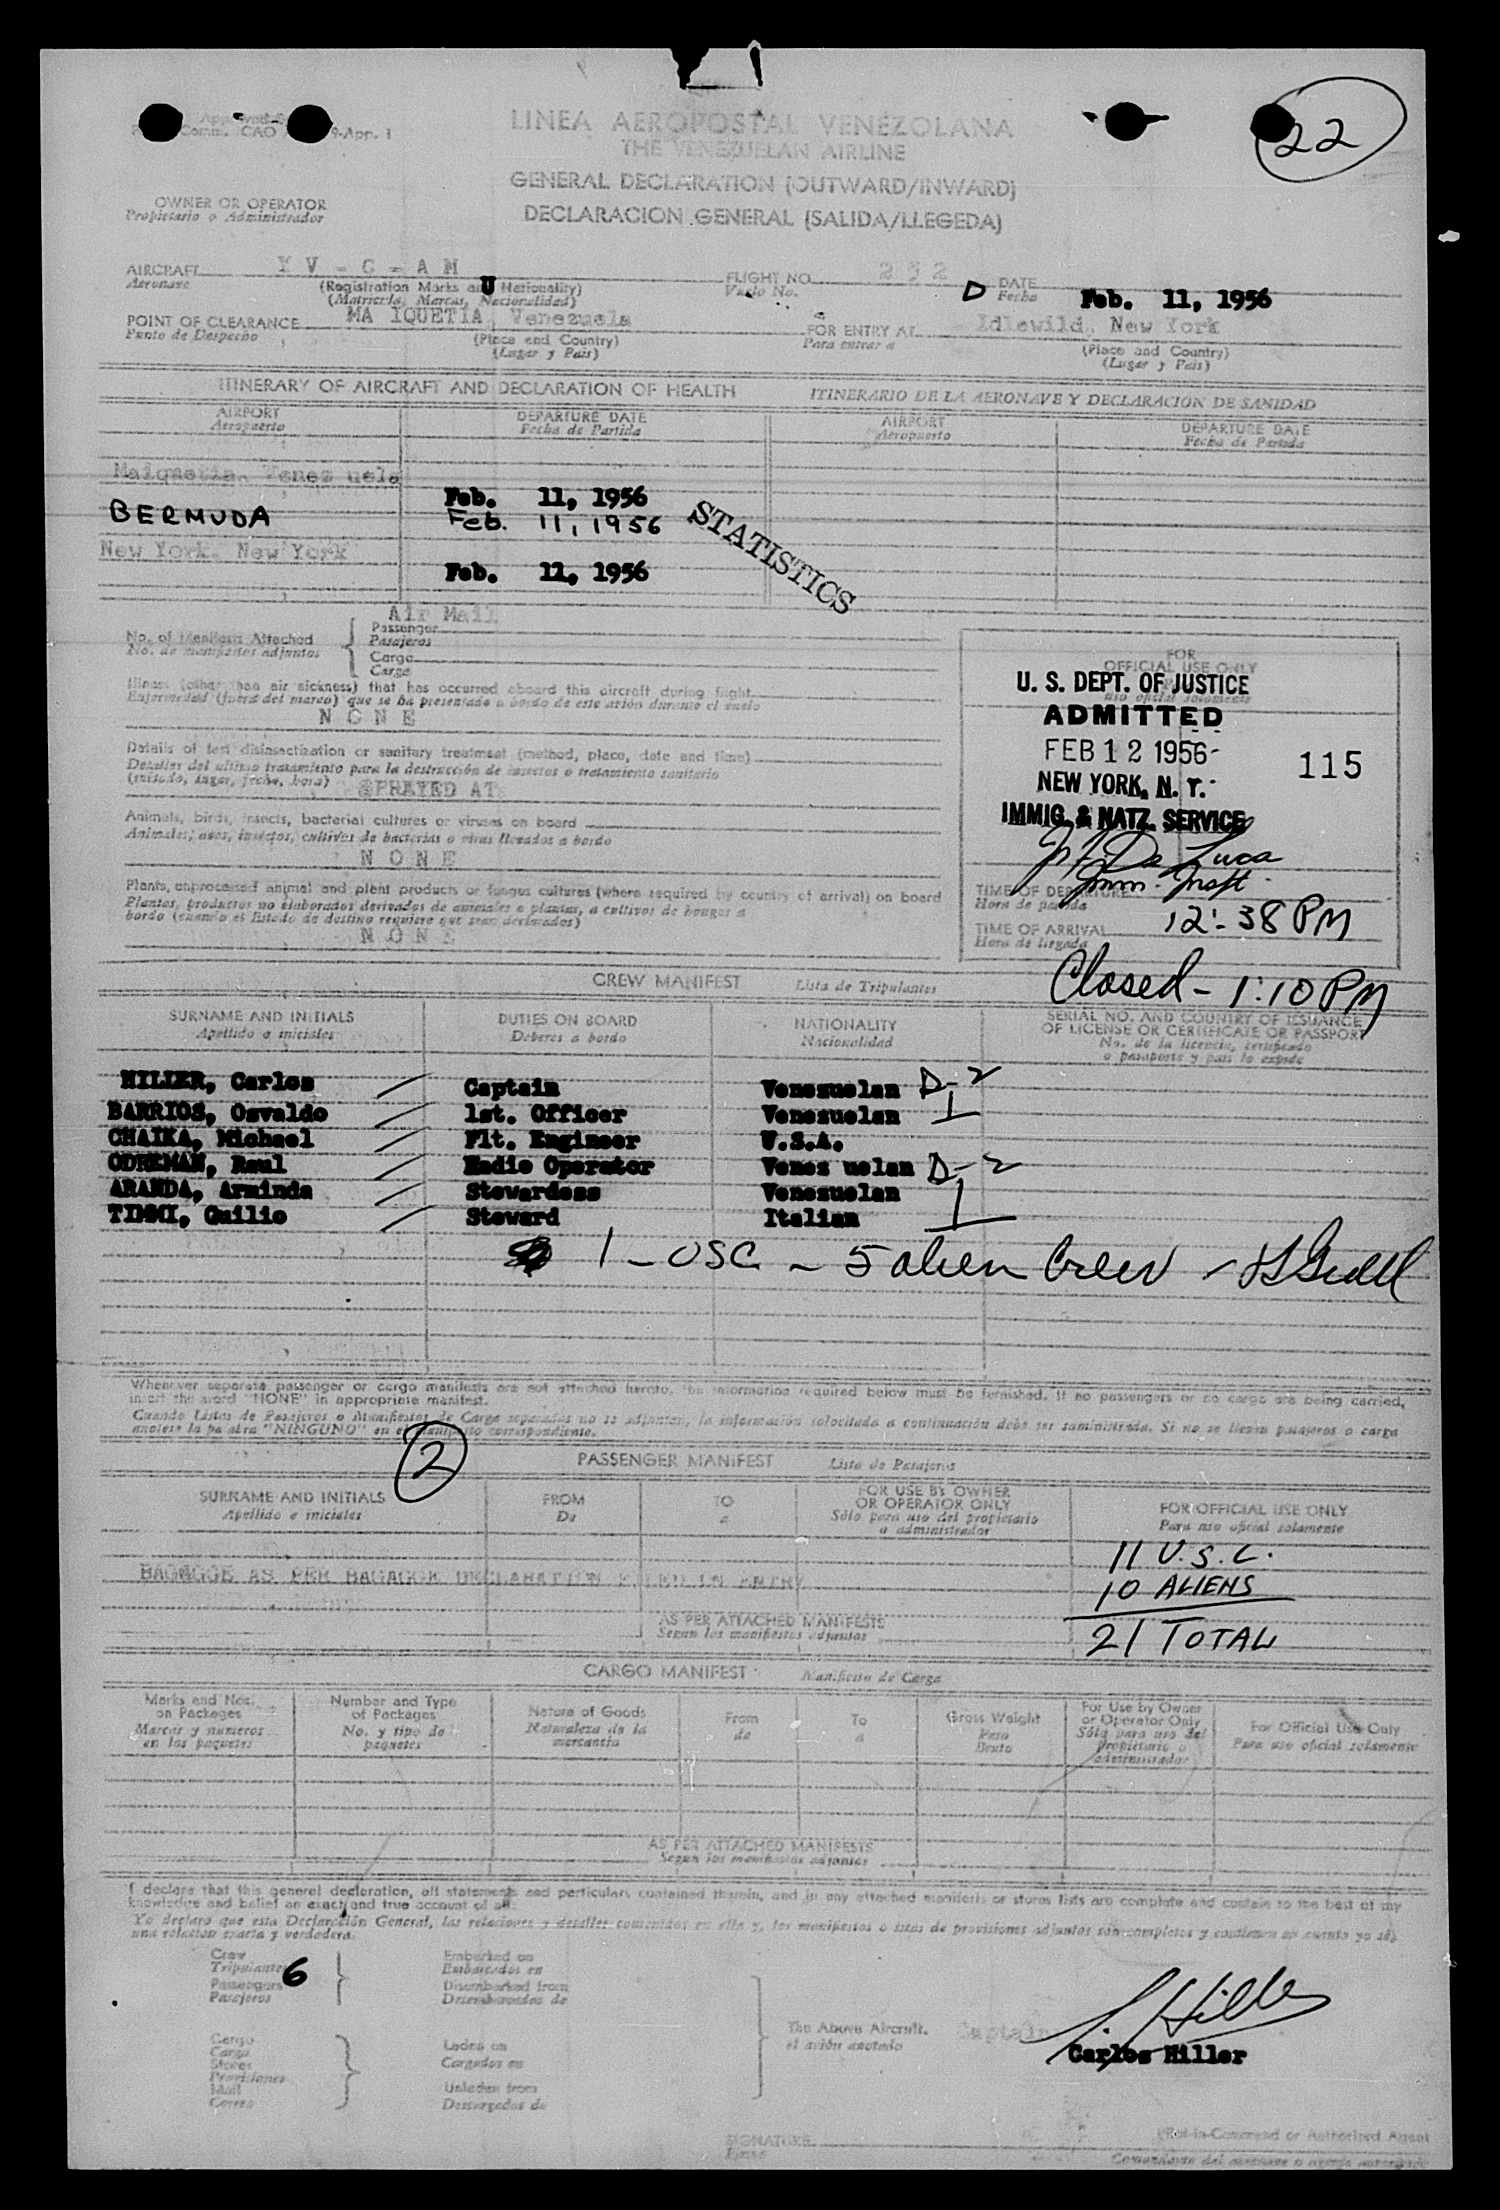 22
LINEA AEROPOSTAL VENEZOLANA
THE VENEZUELAN AIRLINE
GENERAL DECLARATION (OUTWARD/INWARD)
DECLARACION GENERAL (SALIDA/LLEGEDA)
OWNER OR OPERATOR
Propietario o Administrador
AIRCRAFT Y V - C - A M
Aeronave
(Registration Marks and Nationality)
(Matricula, Marcas, Nacionalidad)
FLIGHT NO. 232
Vuelo No.
D
DATE
Fecha
Feb. 11, 1956
POINT OF CLEARANCE MA IQUETIA, Venezuela
Punto de Despacho
(Place and Country)
(Lugar y Pais)
FOR ENTRY AT Idlewild, New York
Para entrar a
(Place and Country)
(Lugar y Pais)
ITINERARY OF AIRCRAFT AND DECLARATION OF HEALTH ITINERARIO DE LA AERONAVE Y DECLARACION DE SANIDAD
AIRPORT DEPARTURE DATE AIRPORT DEPARTURE DATE
Aeropuerto Fecha de Partida Aeropuerto Fecha de Partida
Maiquetia, Venez uela
Feb. 11, 1956
BERMUDA Feb. 11, 1956
New York, New York
Feb. 11, 1956
STATISTICS
Air Mail
No. of Manifests Attached
No. de manifiestos adjuntos
Passenger
Pasajeros
Cargo
Carga
Illness (other than air sickness) that has occurred aboard this aircraft during flight
Enfermedad (fuera del mareo) que se ha presentado a bordo de este avión durante el vuelo
N O N E
Details of last disinsectization or sanitary treatment (method, place, date and time)
Detalles del ultimo tratamiento para la destrucción de insectos o tratamiento sanitario
(método, lugar, fecha, hora) SPRAYED AT
Animals, birds, insects, bacterial cultures or viruses on board
Animales, aves, insectos, cultivos de bacterias o virus llevados a bordo
N O N E
Plants, unprocessed animal and plant products or fungus cultures (where required by country of arrival) on board
Plantas, productos no elaborados derivados de animales o plantas, o cultivos de hongos a
bordo (cuando el Estado de destino requiere que sean declarados)
N O N E
FOR
OFFICIAL USE ONLY
U. S. DEPT. OF JUSTICE
ADMITTED
FEB 12 1956
115
NEW YORK, N. Y.
IMMIG. & NATZ. SERVICE
De Luca
Imm. Inspt.
TIME OF DEPARTURE
Hora de partida
TIME OF ARRIVAL 12:38 PM
Hora de llegada
Closed - 1:10 PM
CREW MANIFEST Lista de Tripulantes
SURNAME AND INITIALS DUTIES ON BOARD NATIONALITY SERIAL NO. AND COUNTRY OF ISSUANCE
OF LICENSE OR CERTIFICATE OR PASSPORT
Apellido o iniciales Deberes a bordo Nacionalidad No. de la licencia, certificado
o pasaporte y pais lo expide
HILLER, Carlos Captain Venezuelan D-2
BARRIOS, Osvaldo 1st. Officer Venezuelan
CHAIKA, Michael Flt. Engineer U.S.A.
ODREMAN, Raul Radio Operator Venez uelan D-2
ARANDA, Arminda Stewardess Venezuelan
TIMMI, Guilio Steward Italian
1 - USC - 5 alien Crew
Whenever separate passenger or cargo manifests are not attached hereto, the information required below must be furnished. If no passengers or no cargo are being carried,
insert the word "NONE" in appropriate manifest.
Cuando Listas de Pasajeros o Manifiestos de Carga separados no se adjuntan, la información solocitada a continuación debe ser suministrada. Si no se llevan pasajeros o carga
anotese la pa abra "NINGUNO" en el manifiesto correspondiente.
2
PASSENGER MANIFEST Lista de Pasajeros
SURNAME AND INITIALS FROM TO FOR USE BY OWNER
OR OPERATOR ONLY FOR OFFICIAL USE ONLY
Apellido e iniciales De a Sólo para uso del propietario
o administrador Para uso oficial solamente
11 U.S.C.
BAGAGGE AS PER BAGAGGE DECLARATION FILED IN ENTRY
10 ALIENS
AS PER ATTACHED MANIFESTS
Segun los manifiestos adjuntos
21 TOTAL
CARGO MANIFEST Manifiesto de Carga
Marks and Nos.
on Packages
Marcas y numeros
en los paquetes
Number and Type
of Packages
No. y tipo de
paquetes
Nature of Goods
Naturaleza de la
mercancia
From
de
To
a
Gross Weight
Peso
Bruto
For Use by Owner
or Operator Only
Sólo para uso del
propietario o
administrador
For Official Use Only
Para uso oficial solamente
AS PER ATTACHED MANIFESTS
Segun los manifiestos adjuntos
I declare that this general declaration, all statements and particulars contained therein, and in any attached manifests or stores lists are complete and contain to the best of my
knowledge and belief an exact and true account of all.
Yo declaro que esta Declaración General, las relaciones y detalles contenidos en ella y, los manifiestos o listas de provisiones adjuntos son completos y contienen en cuanto yo sé,
una relacion exacta y verdadera.
Crew
Tripulantes 6
Passengers
Pasajeros
Embarked on
Embarcados en
Disembarked from
Desembarcados de
Cargo
Carga
Stores
Provisiones
Mail
Correo
Laden on
Cargados en
Unladen from
Descargados de
The Above Aircraft.
el avión anotado
Captain
Carlos Hiller
SIGNATURE
Firma
Pilot-in-Command or Authorized Agent